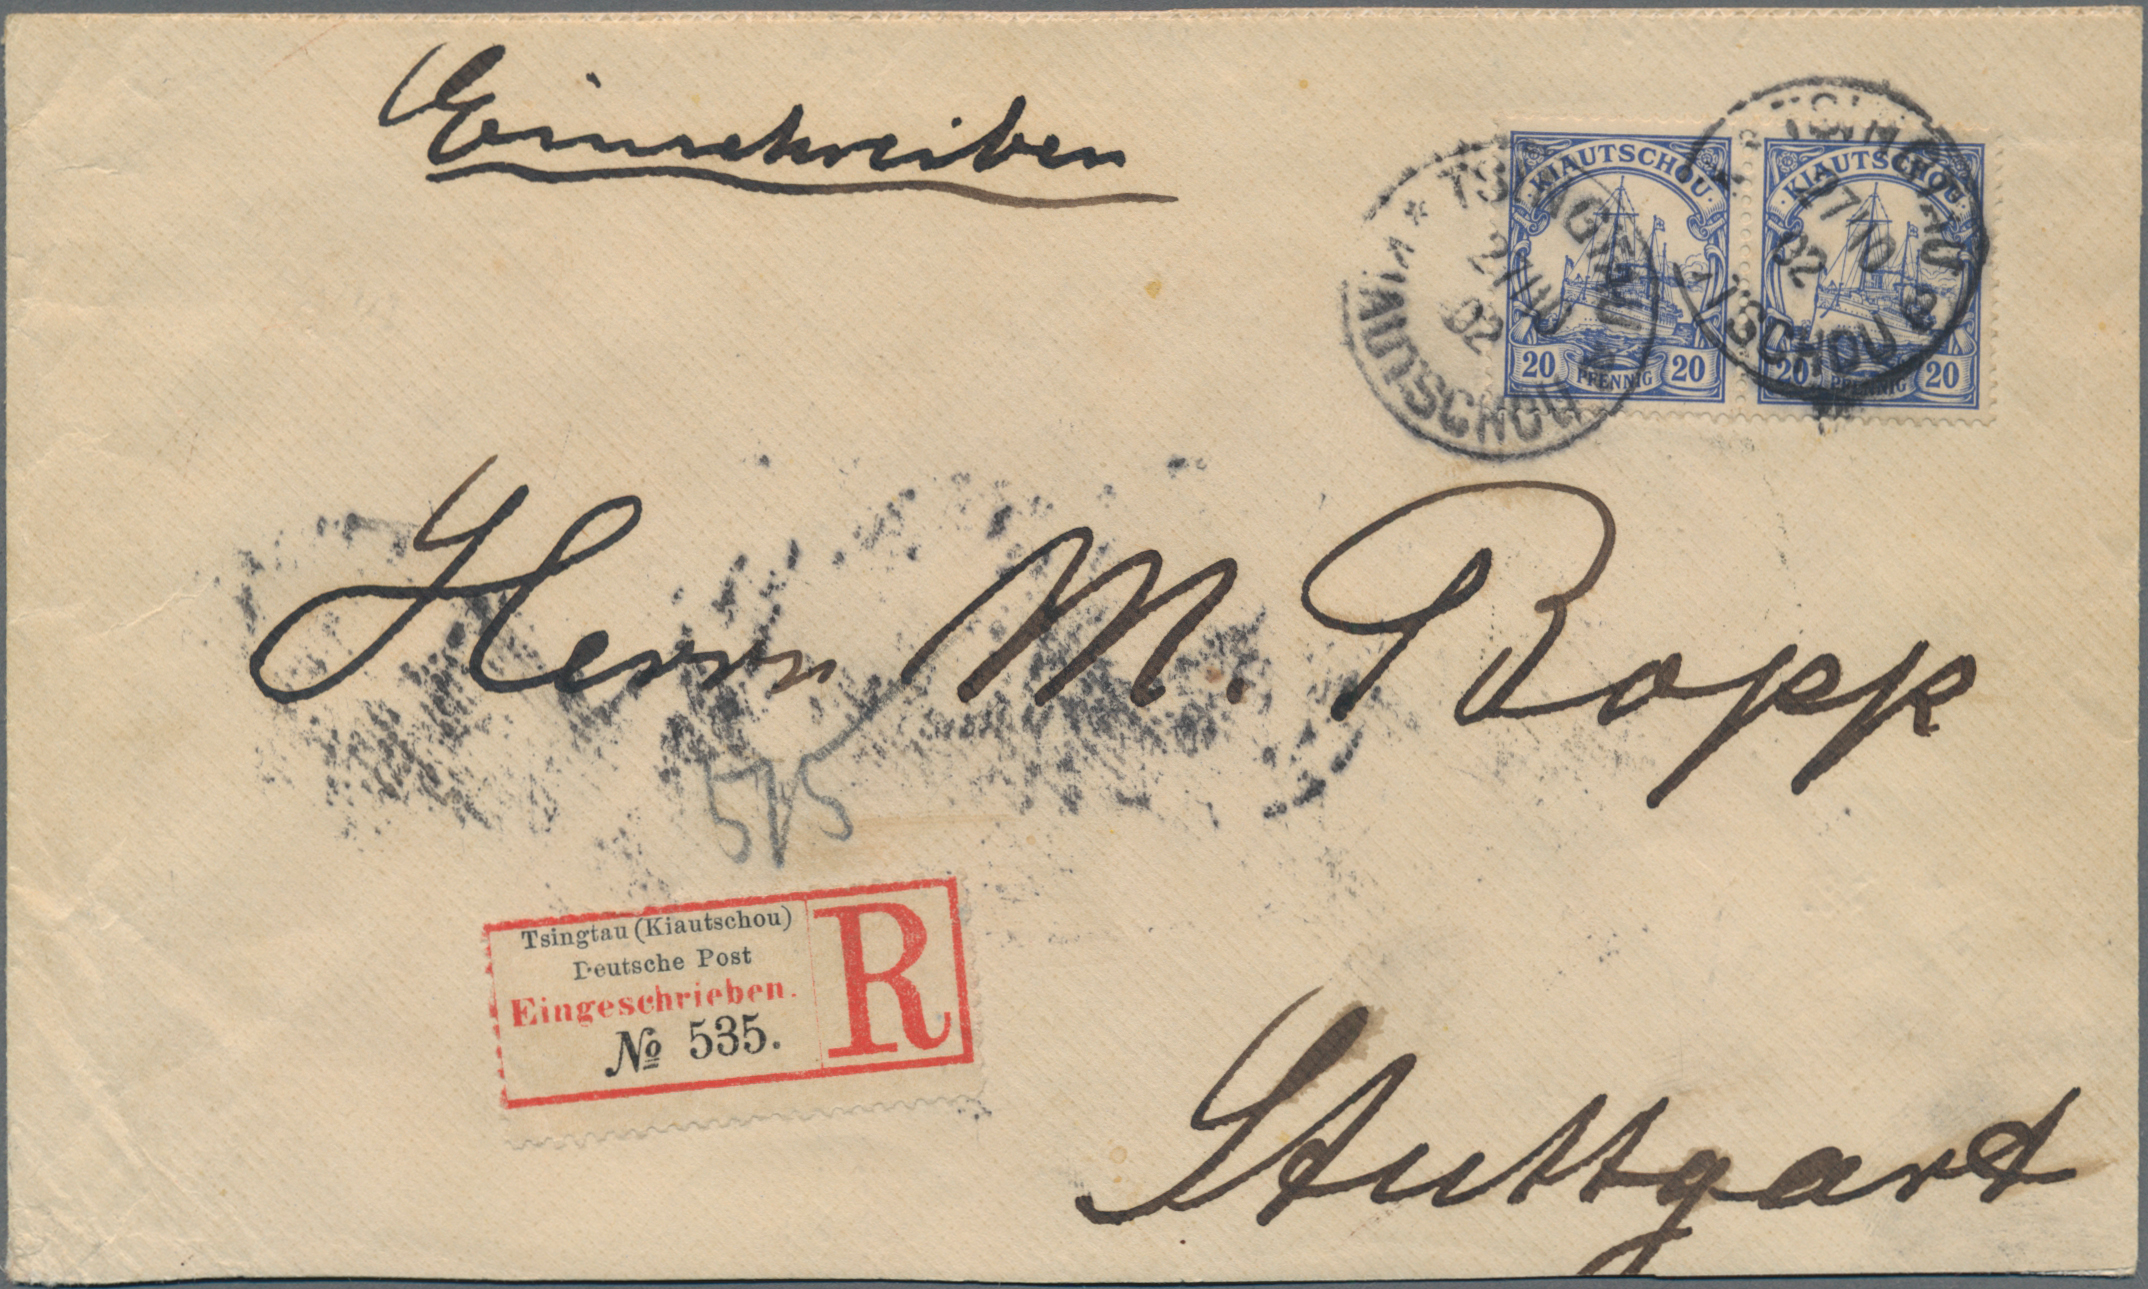 Einschreiben
KIAUTSCHOU
20 PFENNIG 20
KIAUTSCHOU
20 PFENNIG 20
* TSINGTAU
27 10
02
KIAUTSCHOU
TSINGTAU
27 10
02
KIAUTSCHOU
Herrn M. Ropp
515
Tsingtau (Kiautschou)
Deutsche Post
Eingeschrieben.
№ 535.
R
Stuttgart